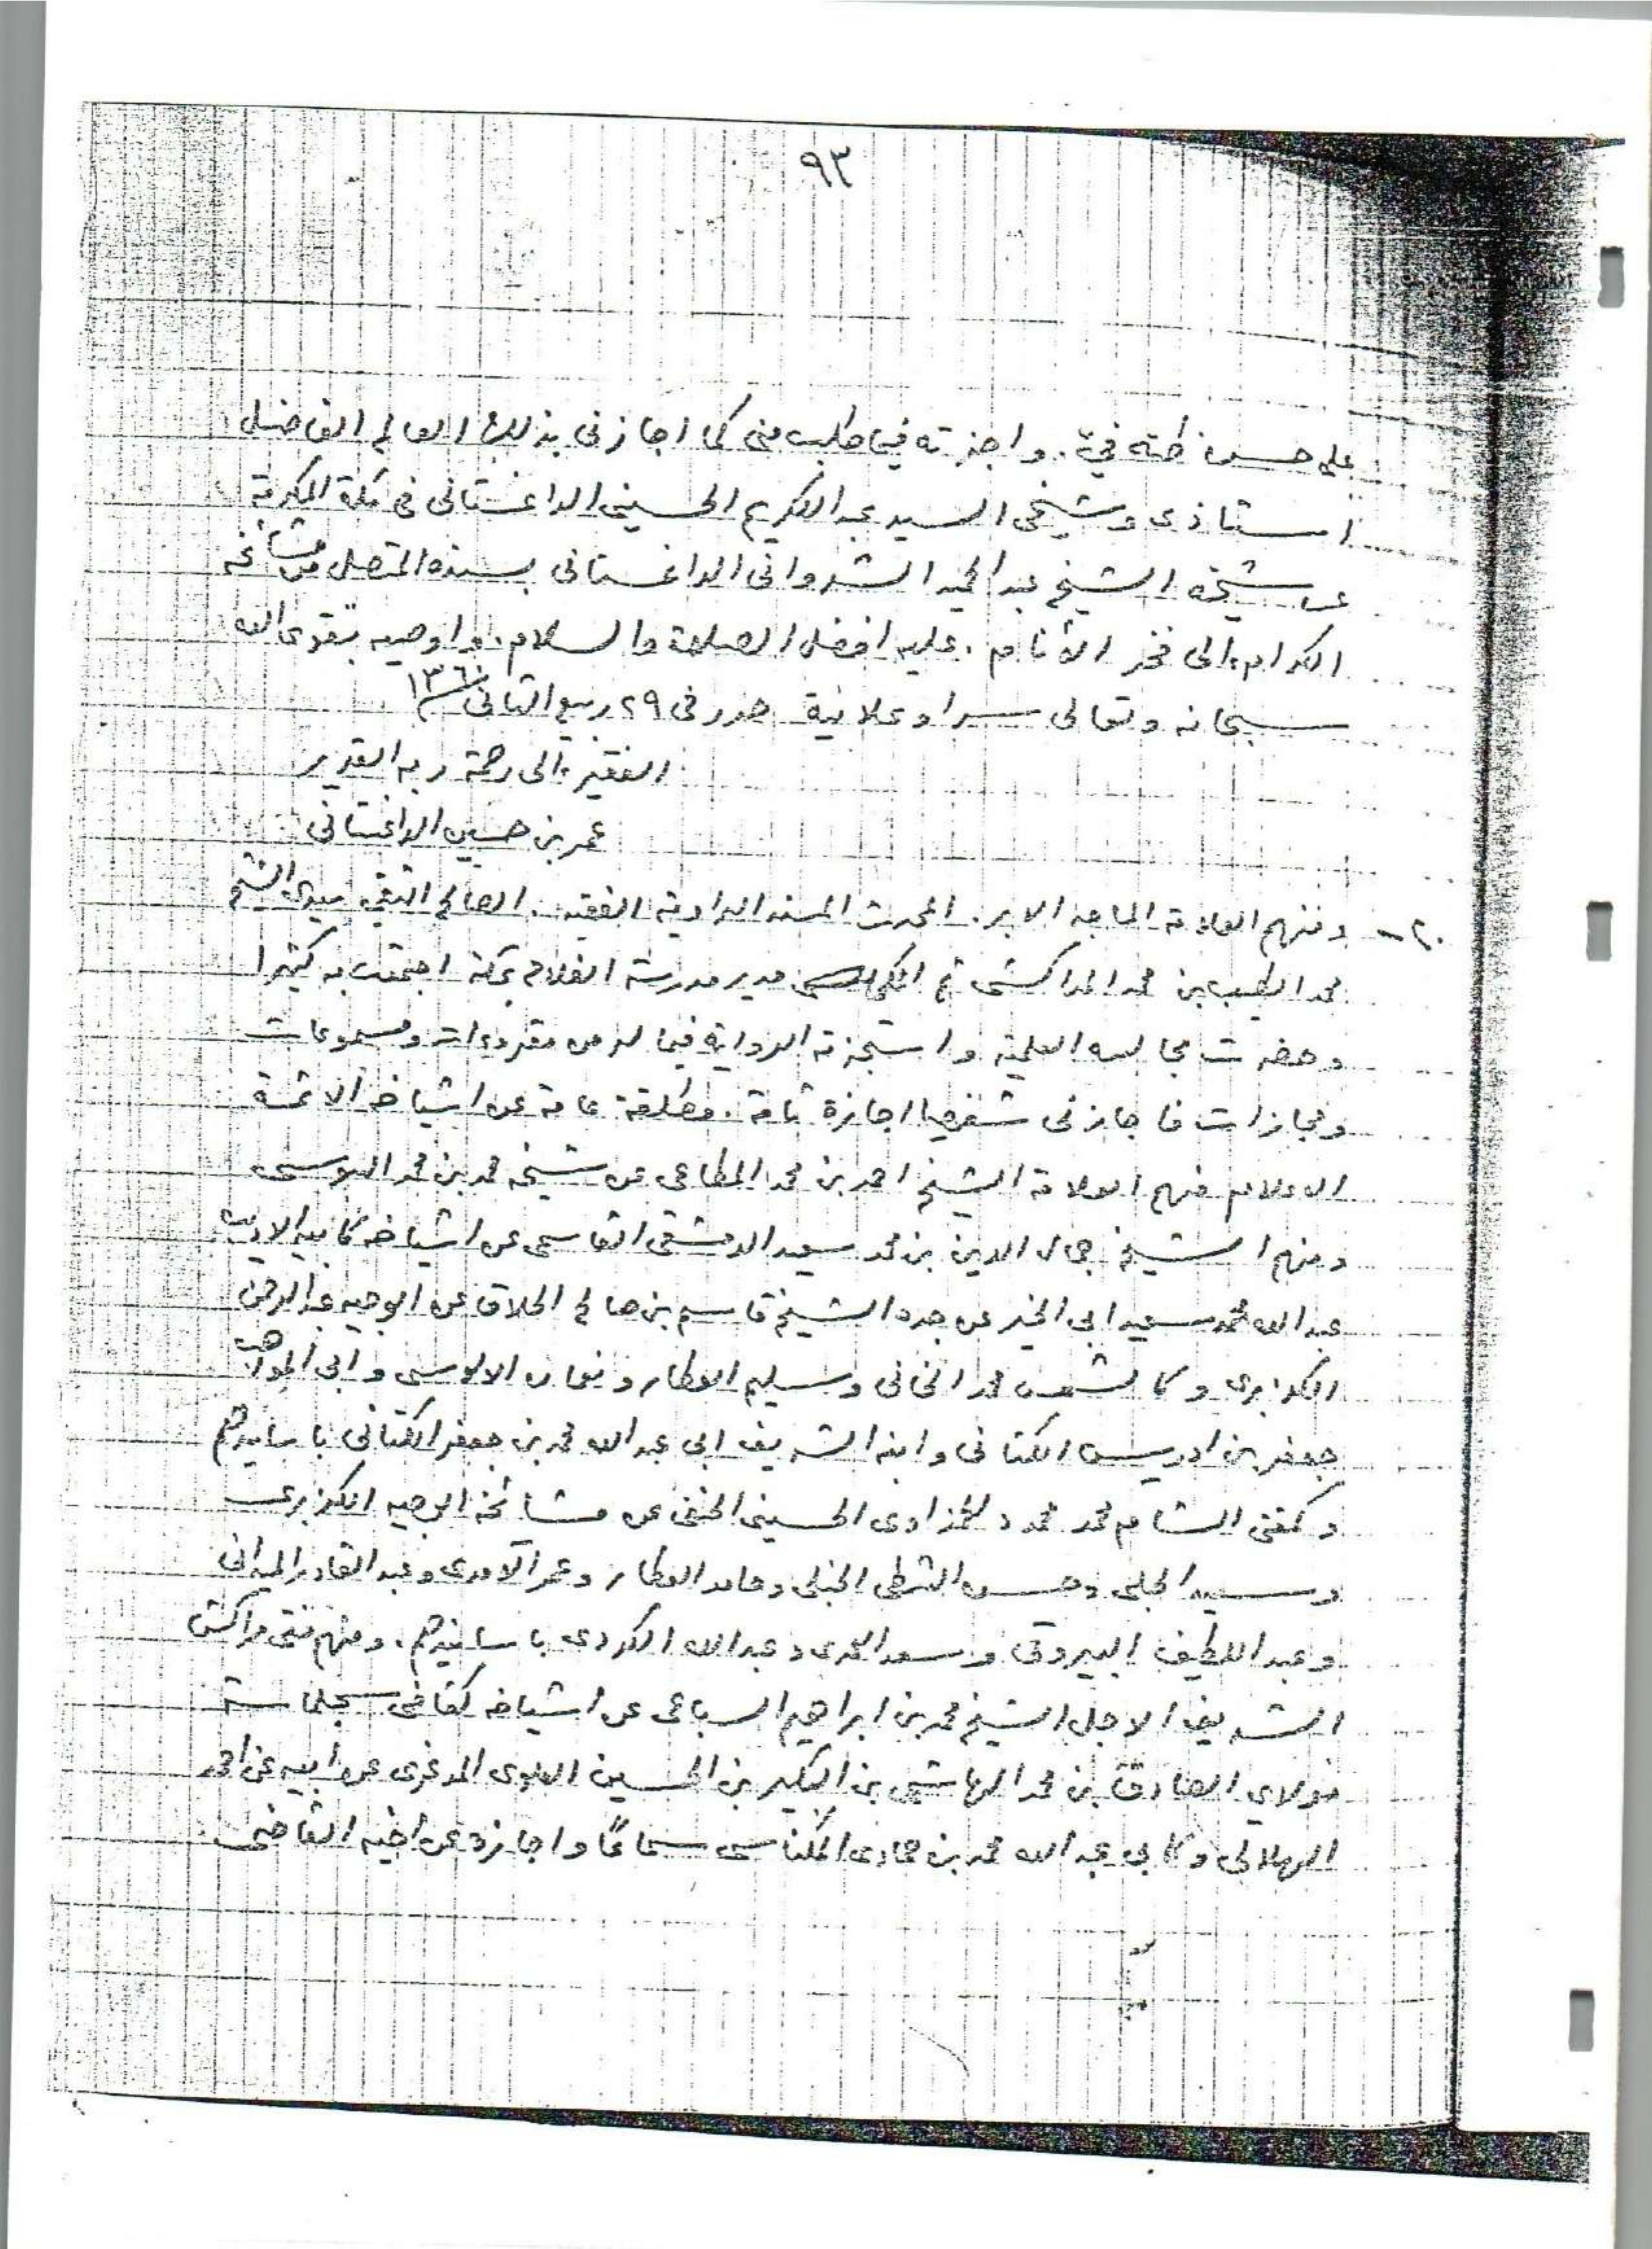 ٩٣
على حسن ظنه فيّ. واجزته فيما طلب منى كما اجازنى بذلك العالم الفاضل
استاذى وشيخى السيد عبد الكريم الحسينى الداغستانى فى مكة المكرمة
عن شيخه الشيخ عبد الحميد الشروانى الداغستانى بسنده المتصل من مشائخه
الكرام الى فخر الأنام. عليه افضل الصلاة والسلام. واوصيه بتقوى الله
سبحانه وتعالى سرا وعلانية صدر فى ٢٩ ربيع الثانى
الفقير الى رحمة ربه القدير
عمر بن حسين الداغستانى
٢٠ - ومنهم العلامة الماجد الابر. المحدث المسند الراوية الفقيه. الصالح التقى سيدى الشيخ
محمد الطيب بن محمد المراكشى ثم المكى مدير مدرسة الفلاح بمكة اجتمعت به كثيرا
وحضرت مجالسه العلمية واستجزته الرواية فيما له من مقروءات ومسموعات
ومجازات فاجازنى شفهيا اجازة تامة. مطلقة عامة عن اشياخه الائمة
الاعلام فمنهم العلامة الشيخ احمد بن محمد المطاعى عن شيخه محمد بن محمد
ومنهم الشيخ جمال الدين بن محمد سعيد الدمشقى القاسمى عن اشياخه كابيه الاديب
عبد الله محمد سعيد ابى الخير عن جده الشيخ قاسم بن صالح الحلاق عن الوجيه عبد الرحمن
الكزبرى وكالشمس محمد الخانى وسليم العطار ونعمان الالوسى وابى المواهب
جعفر بن ادريس الكتانى وابنه الشريف ابى عبد الله محمد بن جعفر الكتانى باسانيدهم
وكمفتى الشام محمد محمود الحمزاوى الحسينى الحنفى عن مشائخه الوجيه الكزبرى
وسعيد الحلبى وحسن الشطى الحنبلى وحامد العطار وعمر الآمدى وعبد القادر الميدانى
وعبد اللطيف البيروتى وسعد العمرى وعبد الله الكردى باسانيدهم. ومنهم مفتى مراكش
الشريف الاجل الشيخ محمد بن ابراهيم السباعى عن اشياخه كقاضى سجلماسة
مولاي الصادق بن محمد الهاشمى بن الكبير بن الحسين العلوى المدغرى عن أبيه عن احمد
الهلالى وكابى عبد الله محمد بن حمادى المكناسى سماعًا واجازة عن اخيه القاضى